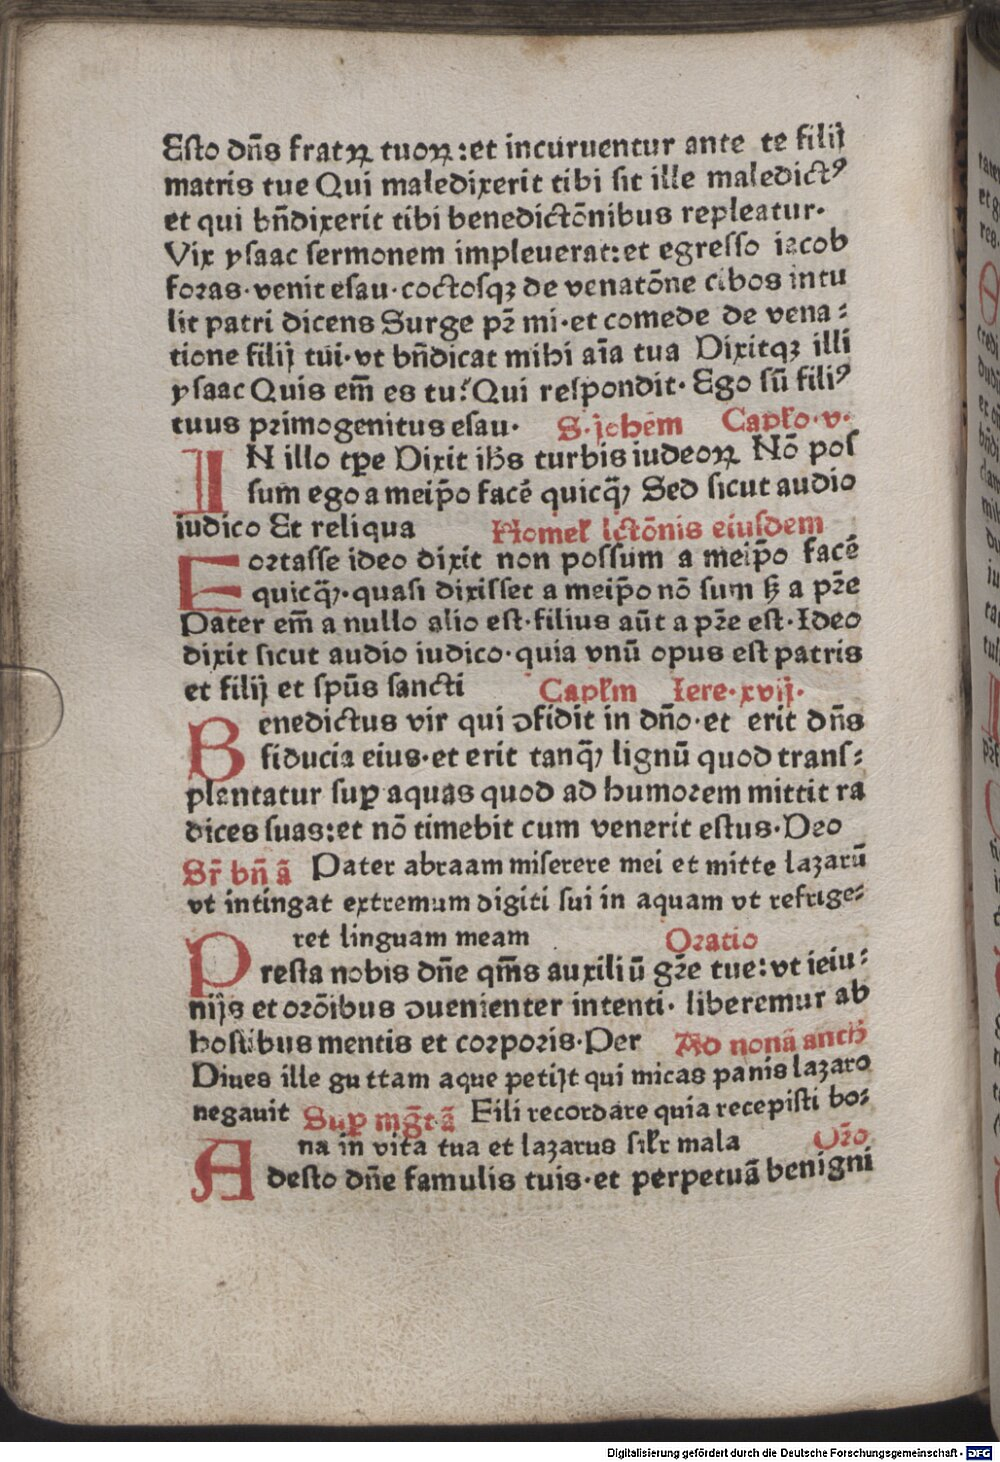 Esto dn̄s fratꝝ tuoꝝ:et incuruentur ante te filij
matris tue Qui maledixerit tibi sit ille maledictꝰ
et qui bn̄dixerit tibi benedictōnibus repleatur·
Vix ysaac sermonem impleuerat:et egresso iacob
foras·venit esau·coctosqꝫ de venatōne cibos intu
lit patri dicens Surge pr̄ mi·et comede de vena⸗
tione filij tui·vt bn̄dicat mihi aīa tua Dixitqꝫ illi
ysaac Quis em̄ es tu? Qui respondit· Ego sū filiꝰ
tuus primogenitus esau· S·johēm Capło·v·
IN illo tꝑe Dixit ihs̄ turbis iudeoꝝ Nō pos
sum ego a meip̄o facē quicqȝ̄ Sed sicut audio
iudico Et reliqua Homeł lctōnis eiusdem
Fortasse ideo dixit non possum a meip̄o facē
quicqȝ̄·quasi dixisset a meip̄o nō sum sꝫ a pr̄e
Pater em̄ a nullo alio est·filius aūt a pr̄e est·Ideo
dixit sicut audio iudico·quia vnū opus est patris
et filij et sp̄us sancti Capłm Iere·xvij·
Benedictus vir qui ↄfidit in dn̄o·et erit dn̄s
fiducia eius·et erit tanqȝ̄ lignū quod trans⸗
plantatur suꝑ aquas quod ad humorem mittit ra
dices suas:et nō timebit cum venerit estus·Deo
Sr̄ bn̄ ā Pater abraam miserere mei et mitte lazarū
vt intingat extremum digiti sui in aquam vt refrige⸗
ret linguam meam Oratio
Presta nobis dn̄e qm̄s auxiliū gr̄e tue:vt ieiu⸗
nijs et orōibus ↄuenienter intenti· liberemur ab
hostibus mentis et corporis·Per Ad nonā anth̄
Diues ille guttam aque petijt qui micas panis lazaro
negauit Suꝑ mḡt ā Fili recordare quia recepisti bo⸗
na in vita tua et lazarus siłr mala Or̄o
Adesto dn̄e famulis tuis·et perpetuā benigni
Digitalisierung gefördert durch die Deutsche Forschungsgemeinschaft - DFG